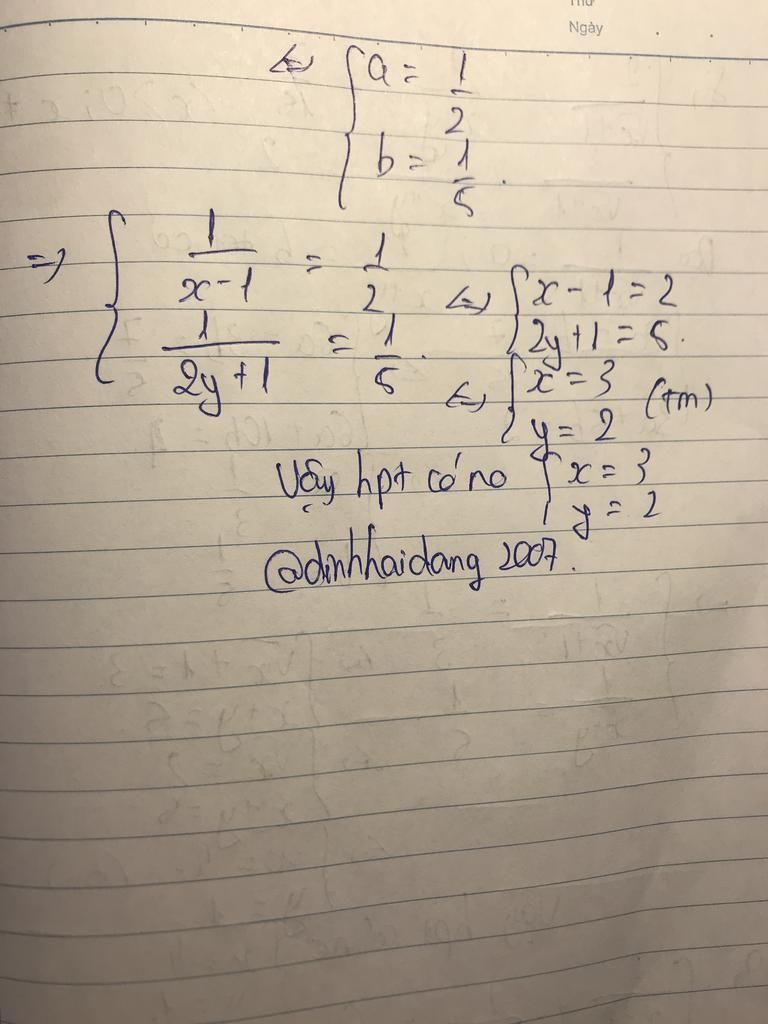 Thứ
Ngày
⇔ { a = 1/2
b = 1/5.
⇒ { 1/(x-1) = 1/2
1/(2y+1) = 1/5.
⇔ { x - 1 = 2
2y+1 = 5.
⇔ { x = 3
y = 2 (tm)
Vậy hpt có no { x = 3
y = 2
@dinhhaidang 2007.